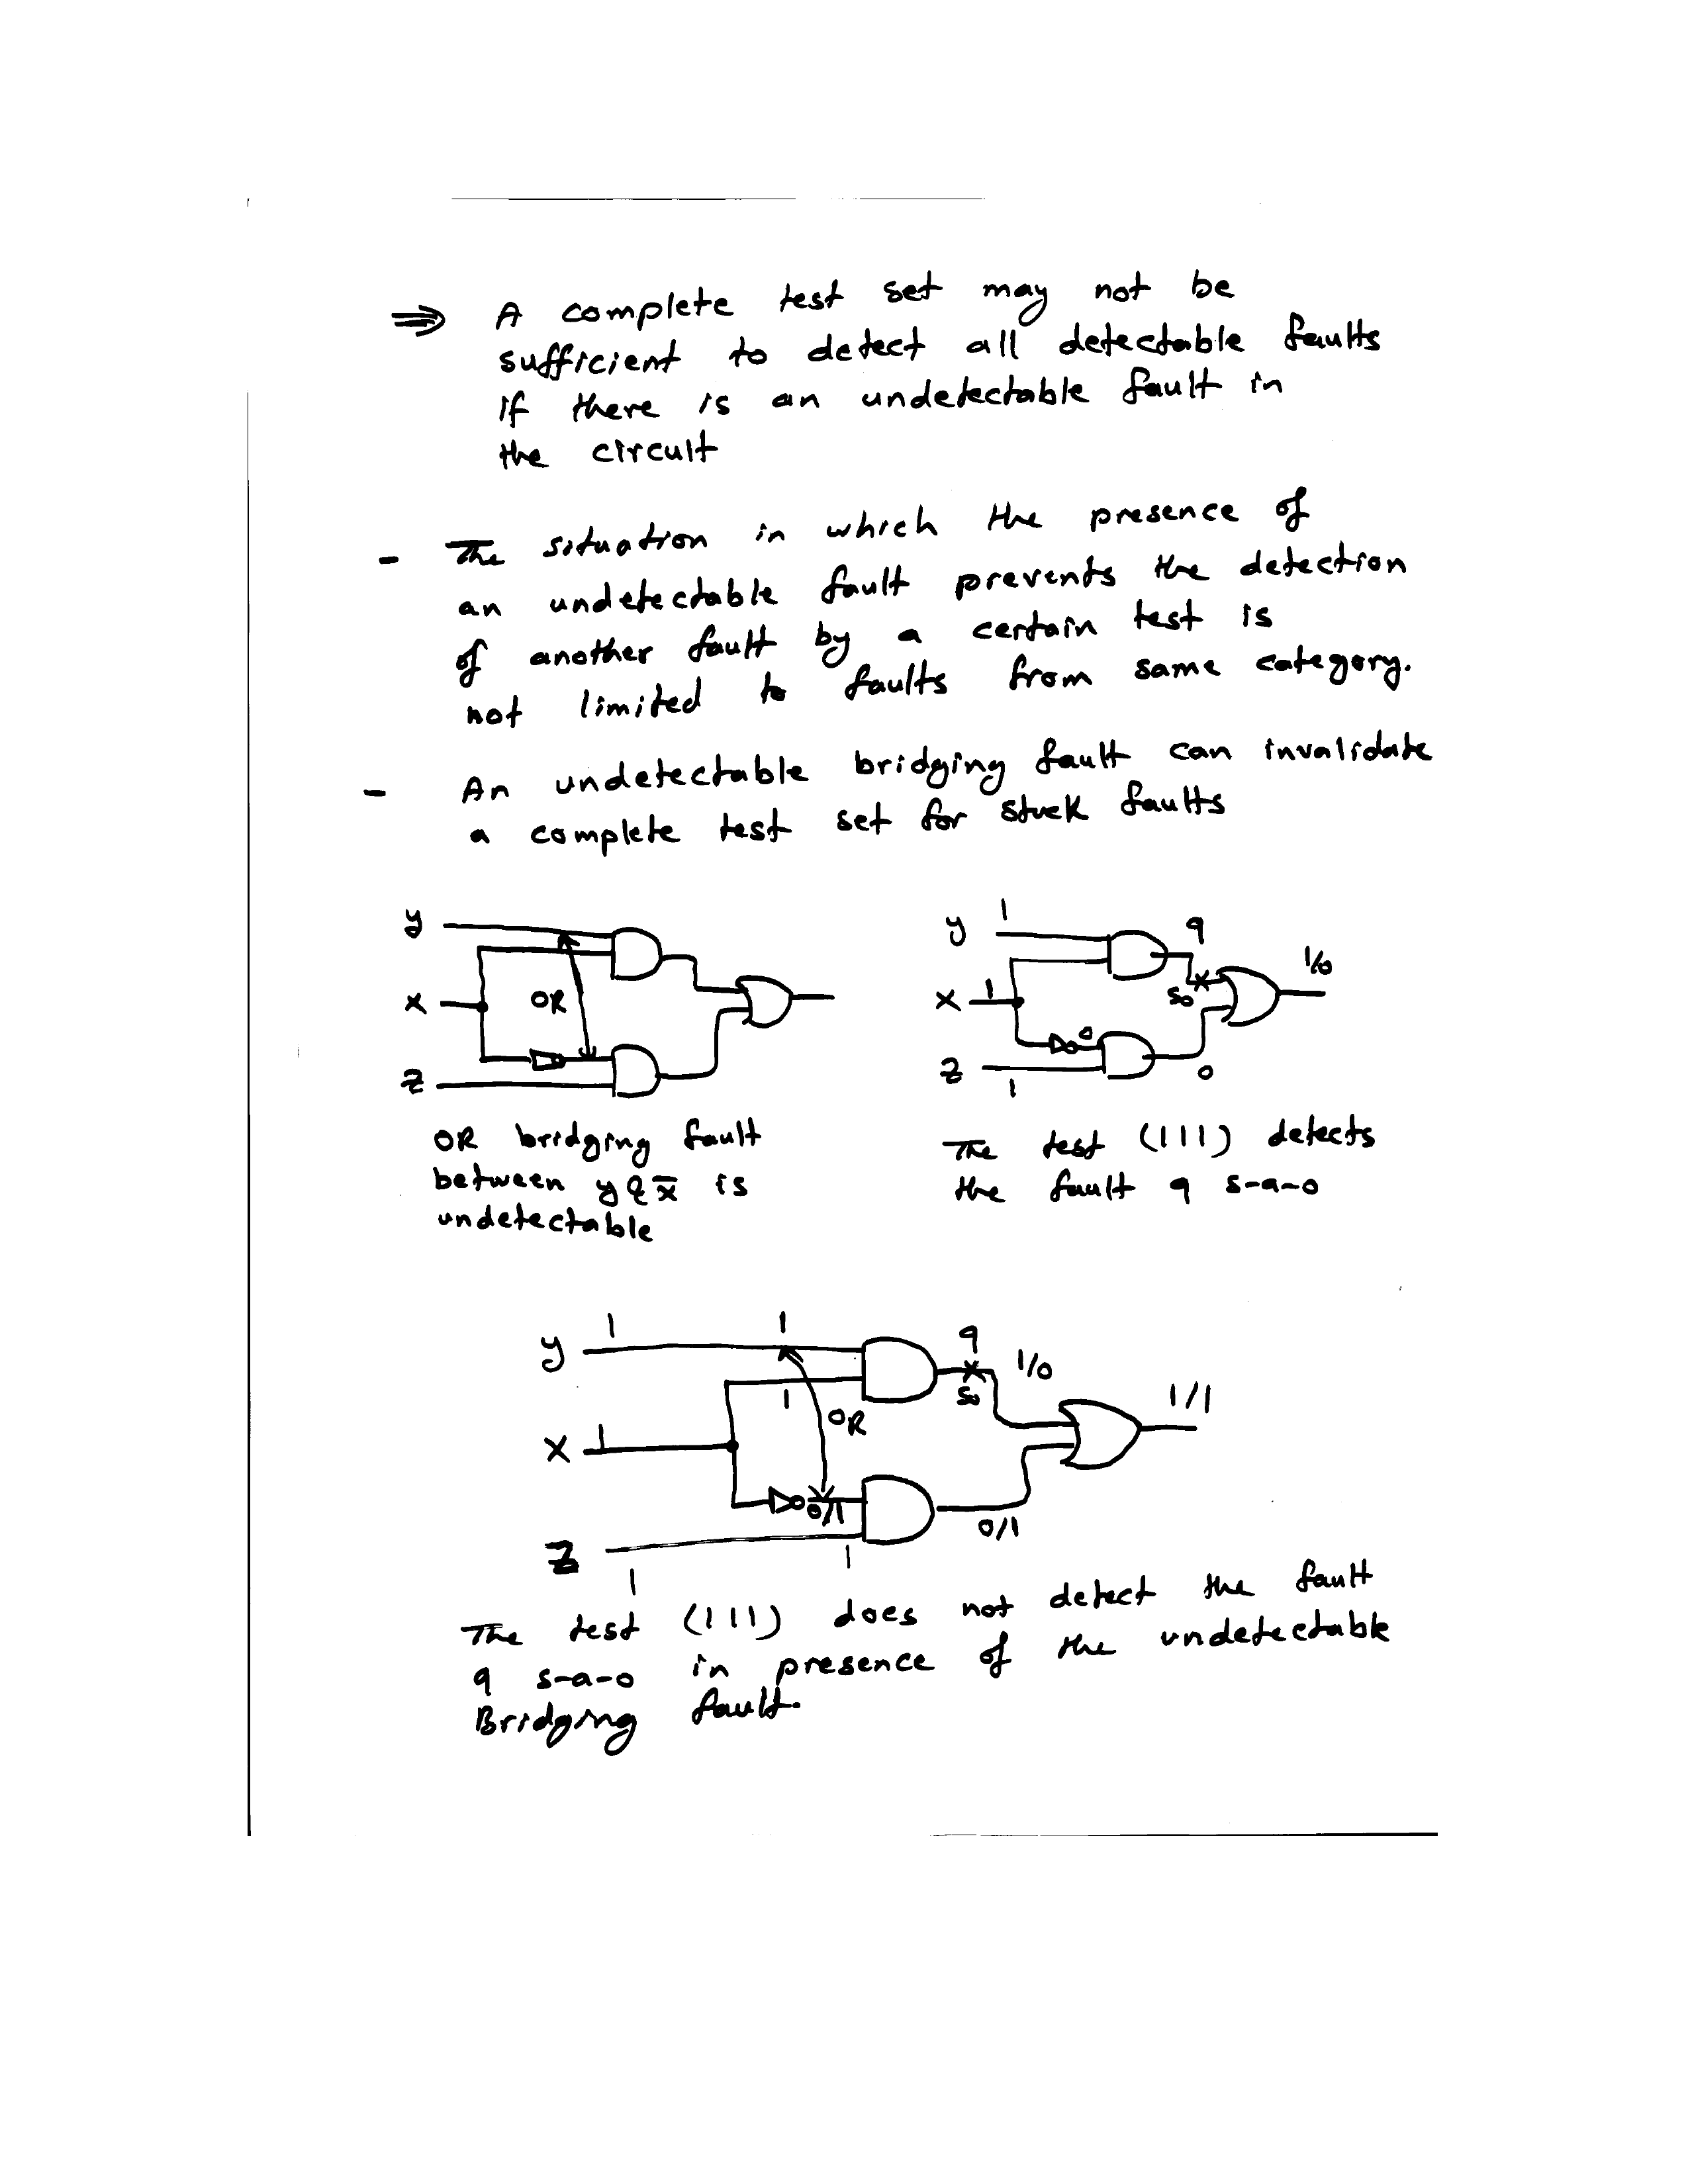 ⇒ A complete test set may not be
sufficient to detect all detectable faults
if there is an undetectable fault in
the circuit
- The situation in which the presence of
an undetectable fault prevents the detection
of another fault by a certain test is
not limited to faults from same category.
- An undetectable bridging fault can invalidate
a complete test set for stuck faults
y
OR
x
z
OR bridging fault
between y & x̅ is
undetectable
y 1 q
1/0
x 1 s0
0
z 1 0
The test (111) detects
the fault q s-a-0
y 1 1 q 1/0
s0 1/1
1
OR
x 1
0/1
0/1
z 1
1
The test (111) does not detect the fault
q s-a-0 in presence of the undetectable
Bridging fault.